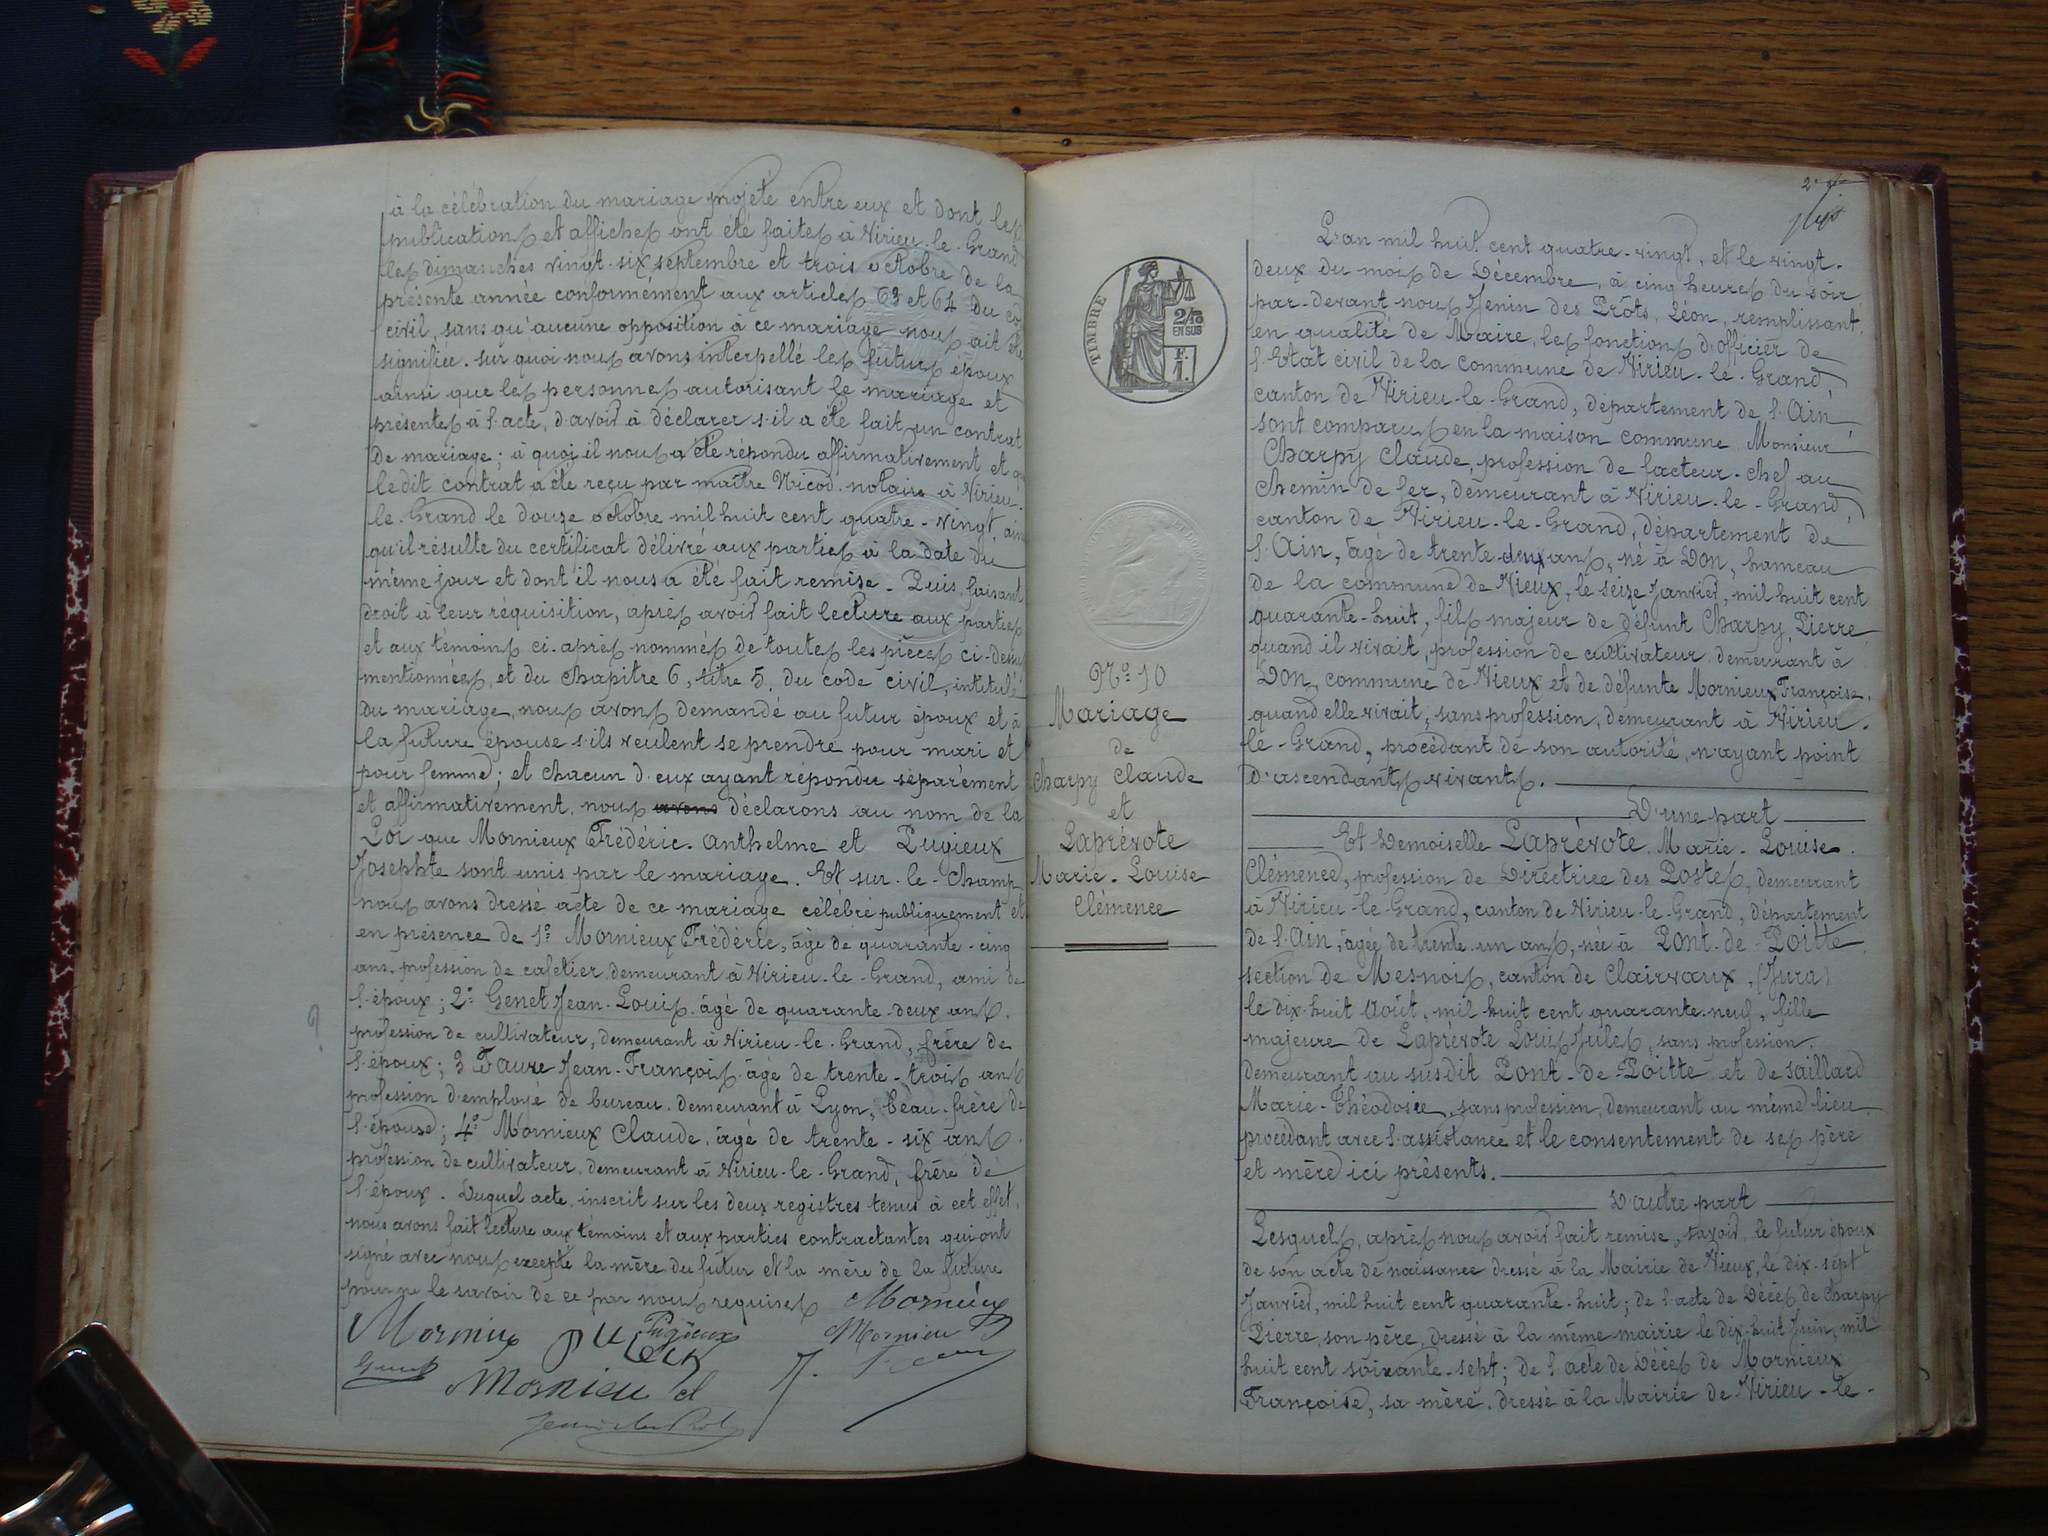 à la célébration du mariage projeté entre eux et dont les
publications et affiches ont été faites à Virieu-le-Grand
les dimanches vingt-six septembre et trois octobre de la
présente année conformément aux articles 63 et 64 du
civil, sans qu'aucune opposition à ce mariage nous ait été
signifiée. Sur quoi nous avons interpellé les futurs époux
ainsi que les personnes autorisant le mariage et
présentes à l'acte, d'avoir à déclarer s'il a été fait un contrat
de mariage; à quoi il nous a été répondu affirmativement et
le dit contrat a été reçu par maître Nicod notaire à Virieu-
le-Grand le douze octobre mil huit cent quatre-vingt,
qu'il résulte du certificat délivré aux parties à la date du
même jour et dont il nous a été fait remise. Puis, faisant
droit à leur réquisition, après avoir fait lecture aux parties
et aux témoins ci-après nommés de toutes les pièces ci-dessus
mentionnées, et du chapitre 6, titre 5, du code civil, intitulé
du mariage, nous avons demandé au futur époux et à
la future épouse s'ils veulent se prendre pour mari et
pour femme; et chacun d'eux ayant répondu séparément
et affirmativement, nous avons déclarons au nom de la
Loi que Mornieux Frédéric-Anthelme et Pugieux
Josephte sont unis par le mariage. Et sur-le-champ
nous avons dressé acte de ce mariage célébré publiquement et
en présence de 1º Mornieux Frédéric, âgé de quarante-cinq
ans, profession de cafetier, demeurant à Virieu-le-Grand, ami de
l'époux; 2º Genet Jean-Louis, âgé de quarante-deux ans,
profession de cultivateur, demeurant à Virieu-le-Grand, frère de
l'époux; 3 Faure Jean-François âgé de trente-trois ans
profession d'employé de bureau, demeurant à Lyon, beau-frère de
l'épouse; 4º Mornieux Claude, âgé de trente-six ans,
profession de cultivateur, demeurant à Virieu-le-Grand, frère de
l'époux. Duquel acte, inscrit sur les deux registres tenus à cet effet,
nous avons fait lecture aux témoins et aux parties contractantes qui ont
signé avec nous excepté la mère du futur et la mère de la future
pour ne le savoir de ce par nous requises
Mornieux
Pugieux
Mornieu
Mornieu cl
TIMBRE
2/10
EN SUS
F.
1.
Nº 10
Mariage
de
Charpy Claude
et
Laprévote
Marie-Louise
Clémence
L'an mil huit cent quatre-vingt, et le vingt-
deux du mois de Décembre, à cinq heures du soir,
par-devant nous Jenin des Prôts, Léon, remplissant,
en qualité de Maire, les fonctions d'officier de
l'Etat civil de la commune de Virieu-le-Grand,
canton de Virieu-le-Grand, département de l'Ain,
sont comparus en la maison commune Monsieur
Charpy Claude, profession de facteur-chef au
chemin de fer, demeurant à Virieu-le-Grand,
canton de Virieu-le-Grand, département de
l'Ain, âgé de trente-deux ans, né à Don, hameau
de la commune de Vieux, le seize Janvier, mil huit cent
quarante-huit, fils majeur de défunt Charpy, Pierre
quand il vivait, profession de cultivateur demeurant à
Don, commune de Vieux et de défunte Mornieux Françoise,
quand elle vivait, sans profession, demeurant à Virieu-
le-Grand, procédant de son autorité, n'ayant point
d'ascendants vivants.
D'une part
Et Demoiselle Laprévote Marie-Louise-
Clémence, profession de Directrice des Postes, demeurant
à Virieu-le-Grand, canton de Virieu-le-Grand, département
de l'Ain, âgée de trente-un ans, née à Pont-de-Poitte,
section de Mesnois, canton de Clairvaux, (Jura)
le dix-huit Août, mil huit cent quarante-neuf, fille
majeure de Laprévote Louis Jules, sans profession,
demeurant au susdit Pont-de-Poitte et de Saillard
Marie-Théodosie, sans profession, demeurant au même lieu,
procédant avec l'assistance et le consentement de ses père
et mère ici présents.
D'autre part
Lesquels, après nous avoir fait remise, savoir, le futur époux
de son acte de naissance dressé à la Mairie de Vieux, le dix-sept
Janvier, mil huit cent quarante-huit; de l'acte de Décès de Charpy
Pierre, son père, dressé à la même mairie le dix-huit Juin, mil
huit cent soixante-sept; de l'acte de Décès de Mornieux
Françoise, sa mère, dressé à la Mairie de Virieu-le-